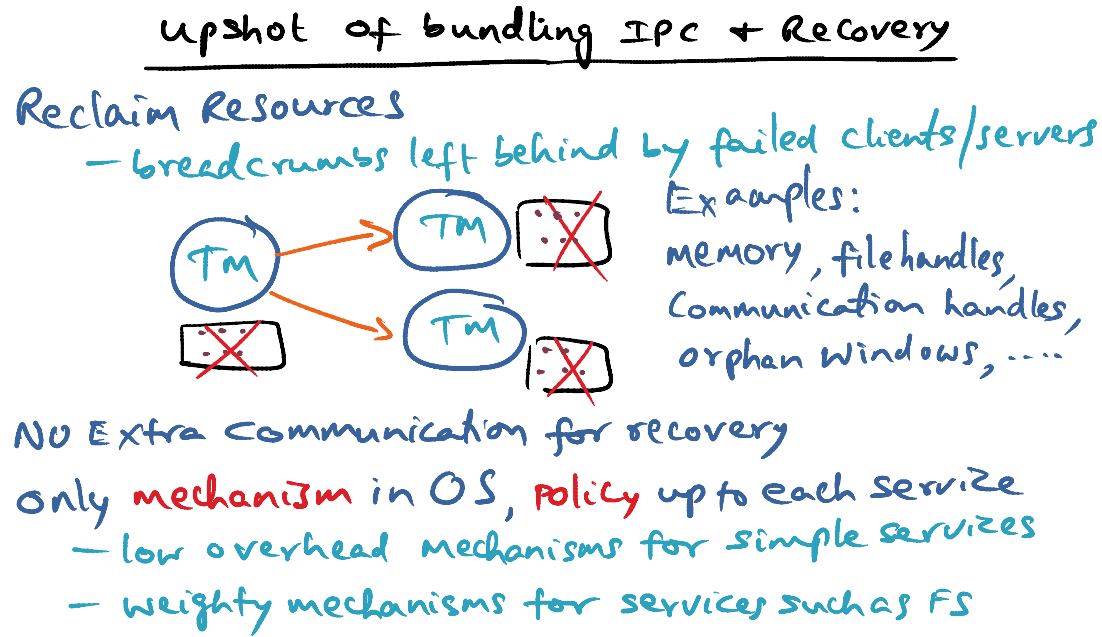 Upshot of bundling IPC + Recovery
Reclaim Resources
- breadcrumbs left behind by failed clients/servers
Examples:
TM
TM
memory, file handles,
Communication handles,
TM
orphan windows, ....
No Extra communication for recovery
only mechanism in OS, policy up to each service
- low overhead mechanisms for simple services
- weighty mechanisms for services such as FS